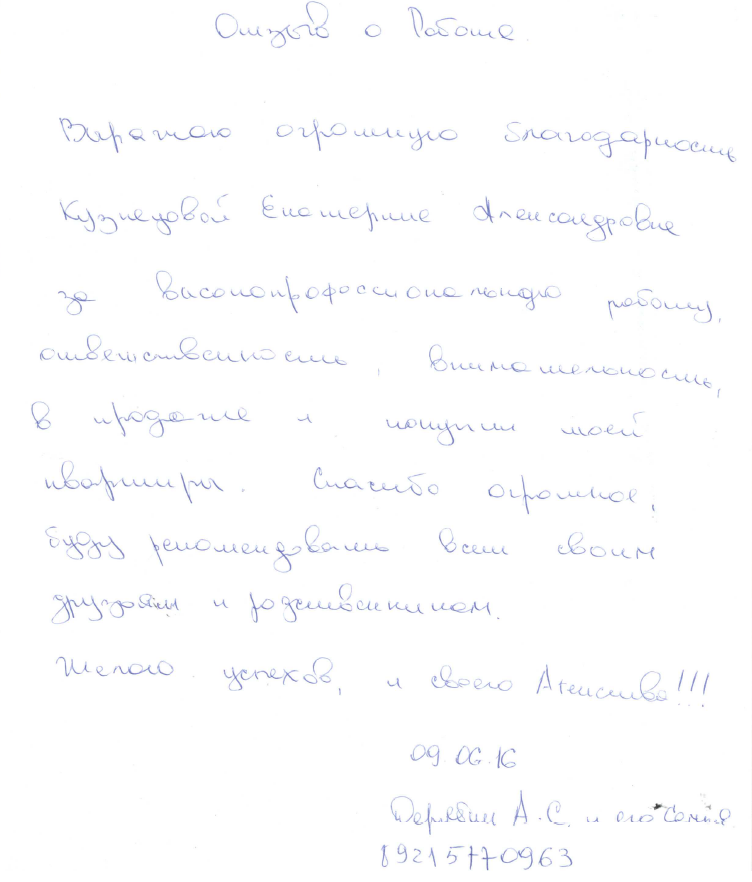 Отзыв о Работе.
Выражаю огромную благодарность
Кузнецовой Екатерине Александровне
за высокопрофессиональную работу,
ответственность, внимательность,
в продаже и покупки моей
квартиры. Спасибо огромное,
буду рекомендовать всем своим
друзьям и родственникам.
Желаю успехов, и своего Агенства!!!
09.06.16
Дерябин А.С. и его Семья
89215770963